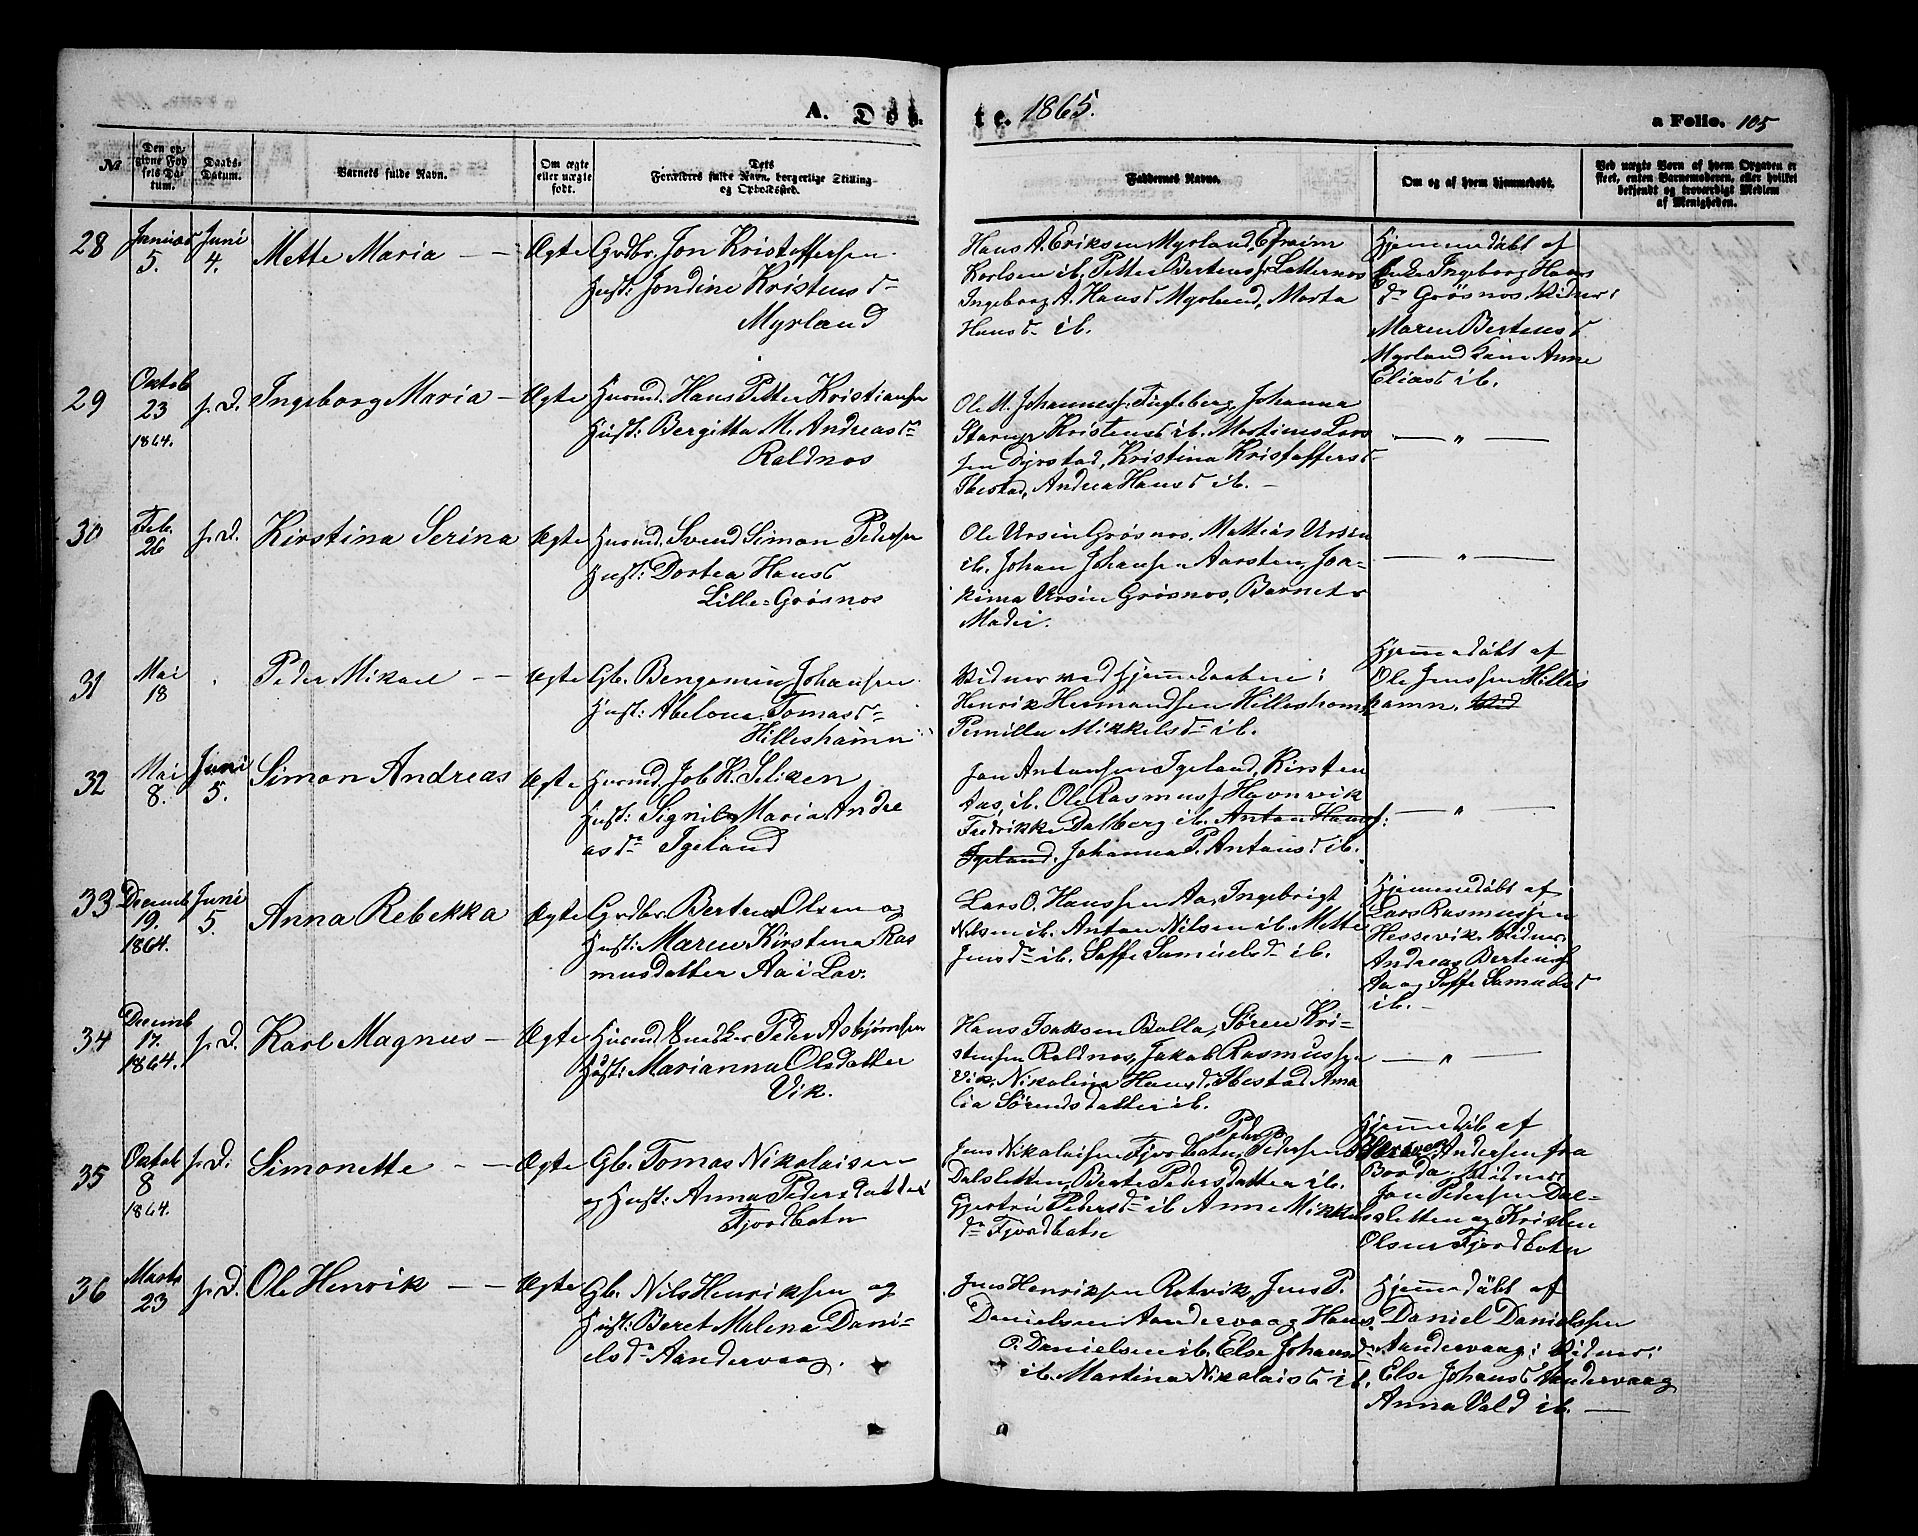 A. Døb
te. 1865.
a Folio. 105
№
Den opgivne Fødsels Datum.
Daabs-Datum.
Barnets fulde Navn.
Om ægte eller uægte født.
Dets
Forældres fulde Navn, borgerlige Stilling
og Opholdssted.
Faddernes Navne.
Om og af hvem hjemmedøbt.
Ved uægte Børn af hvem Opgaven er
skeet, enten Barnemoderen, eller hvilket
bekjendt og troværdigt Medlem
af Menigheden.
28
Januar
5.
Juni
4.
Mette Maria
Ægte
Grdbr. Jon Kristoffersen
Hust: Jondine Kristensd
Myrland
Hans A. Eriksen Myrland, Efraim
Karlsen ib, Petter Bertenss. Latternos
Ingeborg A. Hansd Myrland, Marta
Hansd ib.
Hjemmedøbt af
Enke Ingeborg Hans
d Grøsnos, Vidner:
Maren Bertensd
Myrland Anne
Eliasd ib.
29
Oktob
23
1864.
p. D.
Ingeborg Maria
Ægte
Husmd. Hans Petter Kristiansen
Hust: Bergitta M. Andreasd
Roldnos
Ole M. Johanness. Fugleberg, Johanna
Kristensd ib. Martinus Lars
sen Dyrstad, Kristina Kristoffersd
Ibestad, Andrea Hansd ib.
— " —
30
Feb.
26
p. D.
Kirstina Serina
Ægte
Husmd. Svend Simon Pedersen
Hust: Dortea Hansd
Lille-Grøsnos
Ole Ursin Grøsnos, Mattias Ursin
ib. Johan Johansen Aarsten, Joa-
kima Ursin Grøsnos, Barnets
Moder.
— " —
31
Mai
18
Peder Mikael
Ægte
Gb. Bengamin Johansen
Hust: Abelone Tomasd
Hilleshamn
Vidner ved Hjemedaaben:
Henrik Hermandsen Hilleshamn,
Pernilla Mikkelsd ib.
Hjemmedøbt af
Ole Jenssen Hilles
hamn. Vid
32
Mai
8.
Juni
5.
Simon Andreas
Ægte
Husmd. Job K. Seliken
Hust: Signild Maria Andre
asd Igeland
Jon Antonsen Igeland, Kirsten
Aas, ib. Ole Rasmuss Havnvik
Fredrikke Dalberg ib. Anton Hanss:
Igeland. Johanna P. Antonsd ib.
— " —
33
Decemb
19.
1864.
Juni
5.
Anna Rebekka
Ægte
Grdbr. Berteus Olsen og
Hust: Maren Kirstina Ras
musdatter Aa i Lav.
Lars O. Hanssen Aa, Ingebrigt
Nilsen ib. Anton Nilsen ib. Mette
Jensd ib. Soffe Samuelsd ib.
Hjemmedøbt af
Lars Rasmussen
Hessevik. Vidner
Andreas Bertenss
Aa og Soffe Samuelsd
ib.
34
Decemb
17.
1864.
p. D.
Karl Magnus
Ægte
Husmd Peder Asbjørnsen
Hust: Marianna Olsdatter
Vik.
Hans Isaksen Bolla, Sören Kri-
stensen Roldnos, Jakob Rasmussen
Vik, Nikolina Hansd. Ibestad Ama
lia Sörensdatter ib.
— " —
35
Oktob
8
1864.
p. D.
Simonette
Ægte
Gb. Tomas Nikolaisen
og Hust: Anna Pedersdatter
Fjordbotn
Jens Nikolaisen Fjordbotn, Peder P. Pedersen
Dalsletten, Berte Pedersdatter ib.
Gjertru Pedersd ib Anne Mikkels
d Fjordbotn
Hjemmedøb af
Andersen fra
Borda. Vidner
Jon Pedersen Dal-
sletten og Kristen
Olsen Fjordbotn
36
Marts
23
p. D.
Ole Henrik
Ægte
Gb. Nils Henriksen og
Hust: Beret Malena Dani-
elsd Aandervaag.
Jens Henriksen Rotvik, Jens P.
Danielsen Aandervaag Hans
O. Danielsen ib. Else Johansd
ib. Martina Nikolaisd ib.
Hjemmedøbt af
Daniel Danielssen
Aandervaag: Vidner:
Else Johansd Aandervaag
Anna Vold ib.